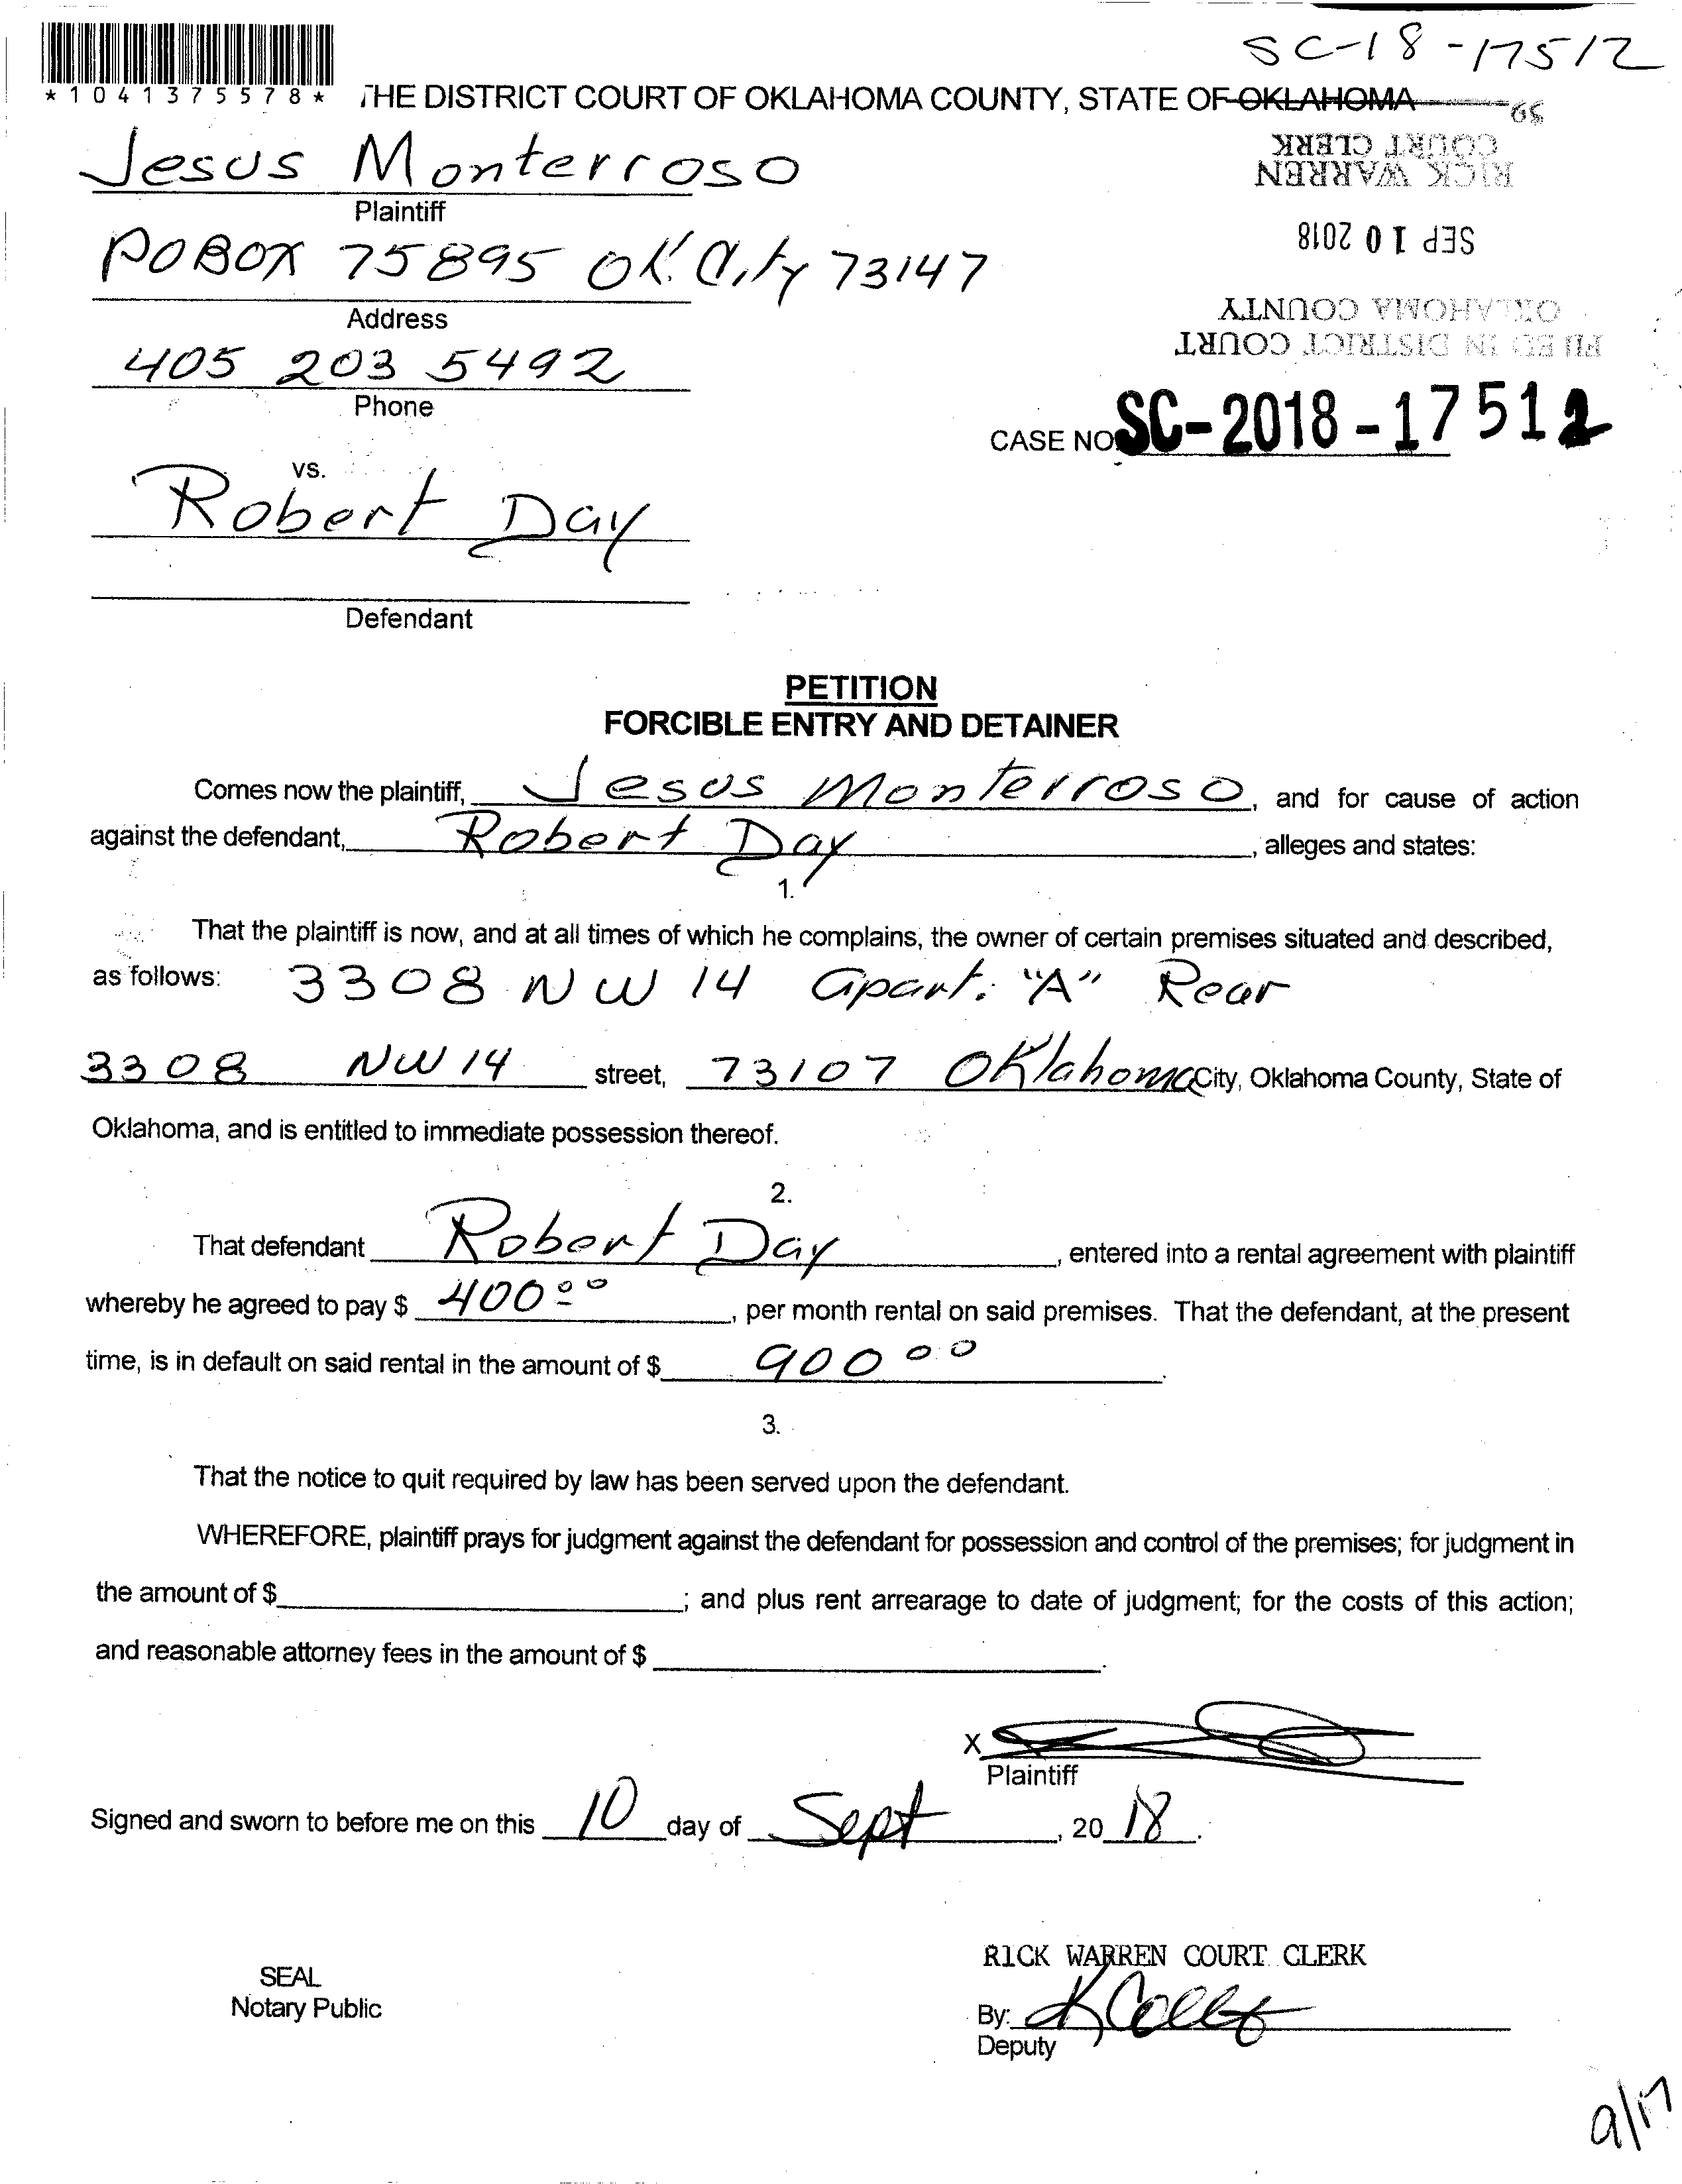 SC-18-17512
*1041375578* THE DISTRICT COURT OF OKLAHOMA COUNTY, STATE OF OKLAHOMA
59
COURT CLERK
RICK WARREN
SEP 10 2018
OKLAHOMA COUNTY
FILED IN DISTRICT COURT
Jesus Monterroso
Plaintiff
PO BOX 75895 OK. City 73147
Address
405 203 5492
Phone
CASE NO. SC-2018-17512
vs.
Robert Day
Defendant
PETITION
FORCIBLE ENTRY AND DETAINER
Comes now the plaintiff, Jesus Monterroso, and for cause of action
against the defendant, Robert Day, alleges and states:
1.
That the plaintiff is now, and at all times of which he complains, the owner of certain premises situated and described,
as follows: 3308 NW 14 apart. "A" Rear
3308 NW 14 street, 73107 Oklahoma City, Oklahoma County, State of
Oklahoma, and is entitled to immediate possession thereof.
2.
That defendant Robert Day, entered into a rental agreement with plaintiff
whereby he agreed to pay $ 400 00, per month rental on said premises. That the defendant, at the present
time, is in default on said rental in the amount of $ 900 00.
3.
That the notice to quit required by law has been served upon the defendant.
WHEREFORE, plaintiff prays for judgment against the defendant for possession and control of the premises; for judgment in
the amount of $ ; and plus rent arrearage to date of judgment; for the costs of this action;
and reasonable attorney fees in the amount of $ .
X
Plaintiff
Signed and sworn to before me on this 10 day of Sept, 20 18.
RICK WARREN COURT CLERK
SEAL
Notary Public
By:
Deputy
9/17